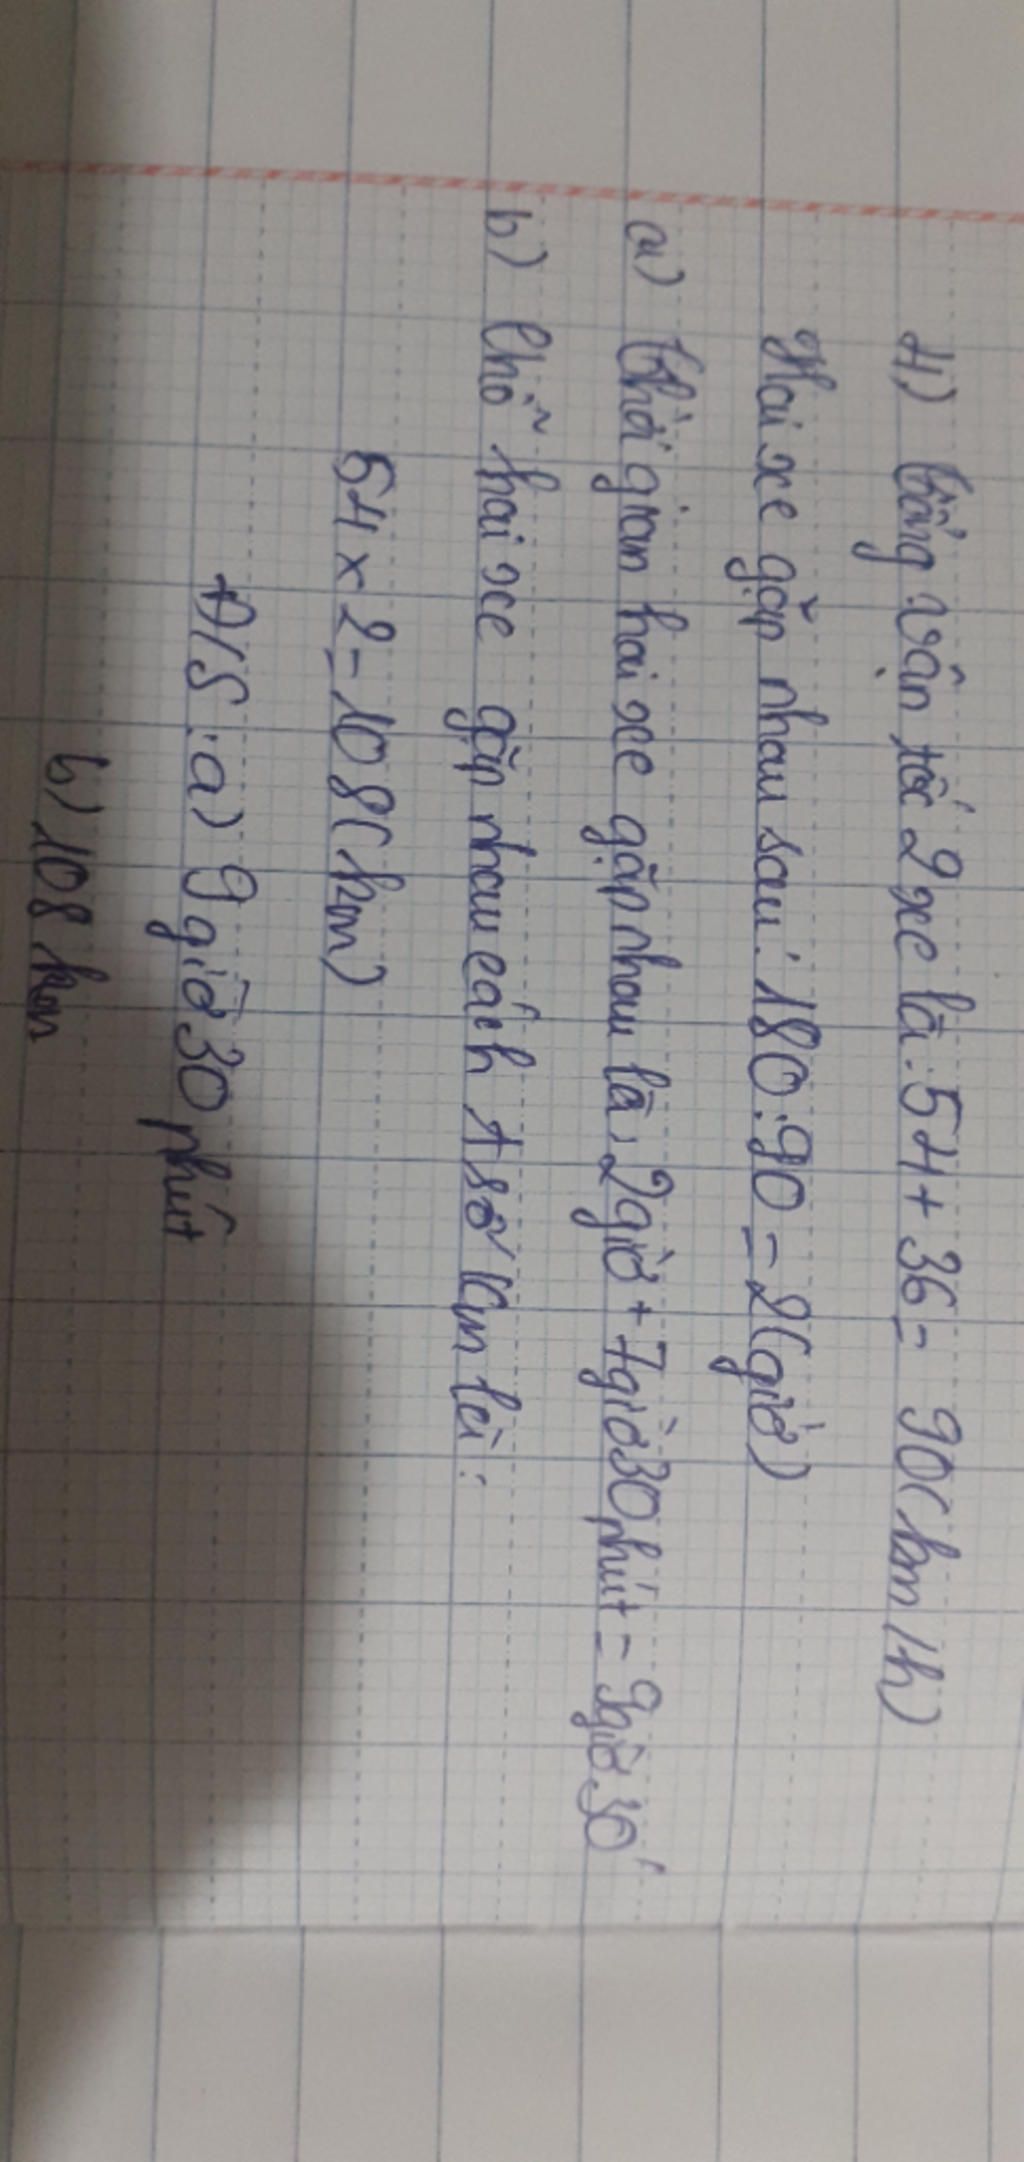 4) Tổng vận tốc 2 xe là: 54 + 36 = 90 (km/h)
Hai xe gặp nhau sau: 180:90 = 2 (giờ)
a) Thời gian hai xe gặp nhau là: 2giờ + 7giờ30phút = 9giờ30'
b) Chỗ hai xe gặp nhau cách A số km là:
54 x 2 = 108 (km)
Đ/S: a) 9 giờ 30 phút
b) 108 km